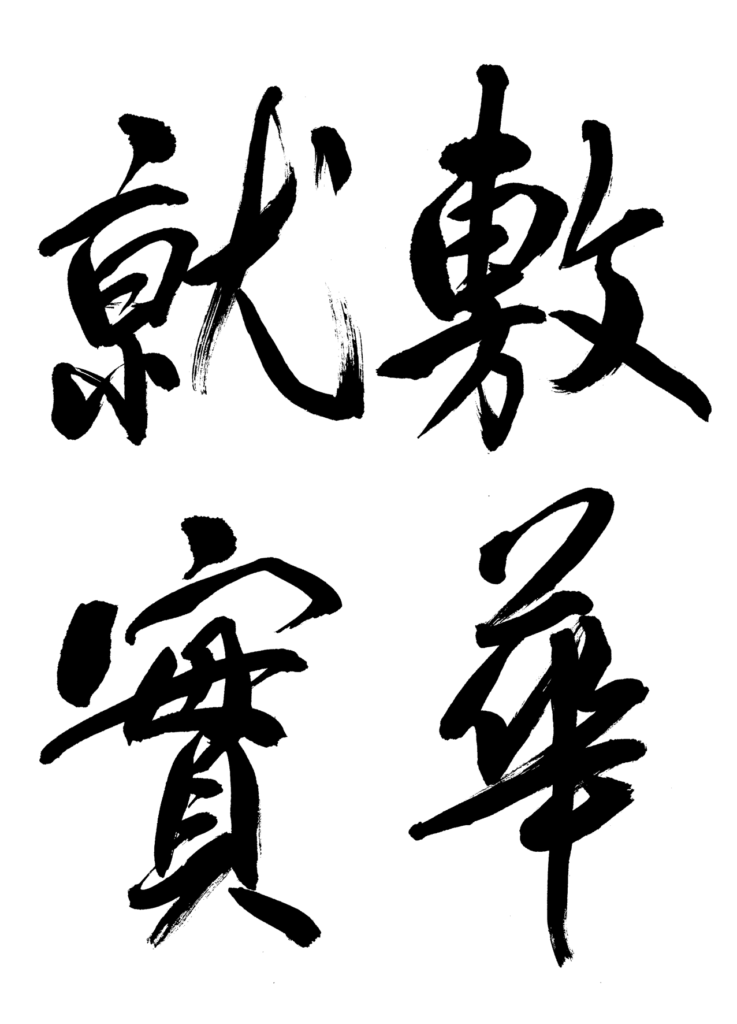 敷華
就實